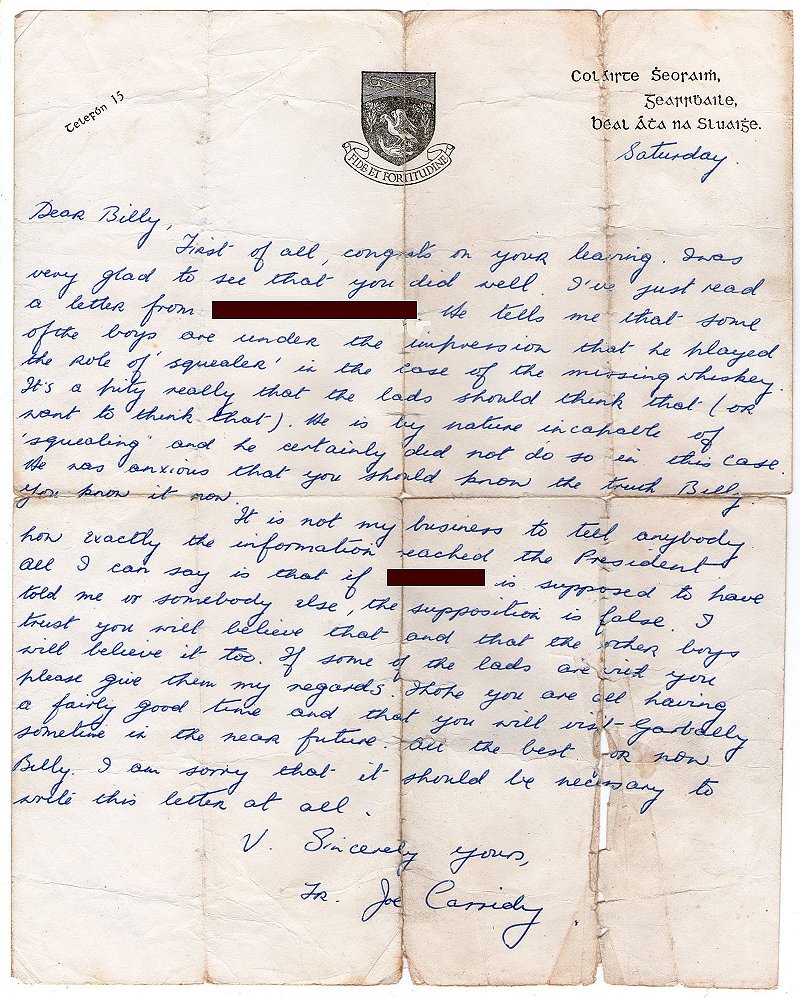 Telefón 15
FIDE ET FORTITUDINE
Coláiste Ṡeosaiṁ,
Gearrbaile,
Béal Áṫa na Sluaiġe.
Saturday.
Dear Billy,
First of all, congrats on your leaving. I was
very glad to see that you did well. I've just read
a letter from He tells me that some
of the boys are under the impression that he played
the role of 'squealer' in the case of the missing whiskey.
It's a pity really that the lads should think that (or
want to think that). He is by nature incapable of
'squealing' and he certainly did not do so in this case.
He was anxious that you should know the truth Billy.
You know it now.
It is not my business to tell anybody
how exactly the information reached the President
All I can say is that if is supposed to have
told me or somebody else, the supposition is false. I
trust you will believe that and that the other boys
will believe it too. If some of the lads are with you
please give them my regards. I hope you are all having
a fairly good time and that you will visit Garbally
sometime in the near future. All the best for now
Billy. I am sorry that it should be necessary to
write this letter at all.
V. Sincerely yours,
Fr. Joe Cassidy.